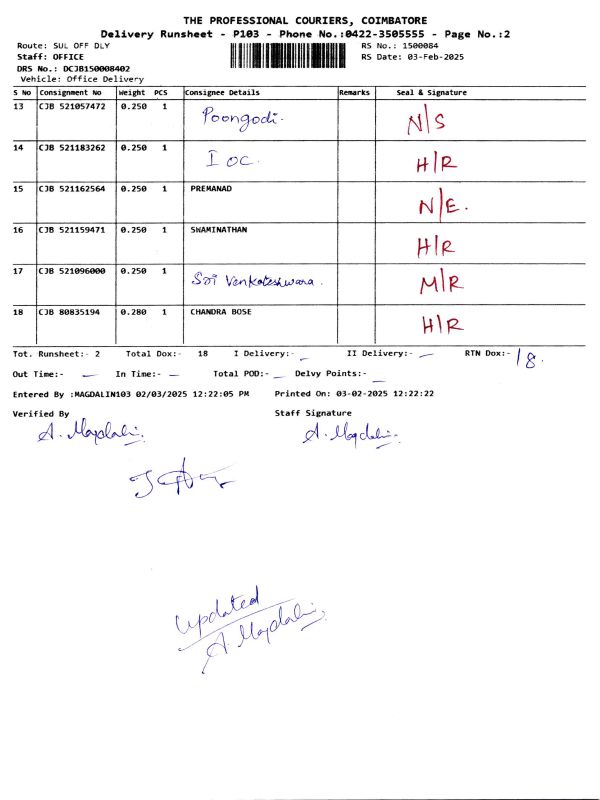 THE PROFESSIONAL COURIERS, COIMBATORE
Delivery Runsheet - P103 - Phone No.:0422-3505555 - Page No.:2
Route: SUL OFF DLY RS No.: 1500084
Staff: OFFICE RS Date: 03-Feb-2025
DRS No.: DCJB150008402
Vehicle: Office Delivery
S No Consignment No Weight PCS Consignee Details Remarks Seal & Signature
13 CJB 521057472 0.250 1 Poongodi. N/S
14 CJB 521183262 0.250 1 I OC. H/R
15 CJB 521162564 0.250 1 PREMANAD N/E.
16 CJB 521159471 0.250 1 SWAMINATHAN H/R
17 CJB 521096000 0.250 1 Sri Venkateshwara. M/R
18 CJB 80835194 0.280 1 CHANDRA BOSE H/R
Tot. Runsheet:- 2 Total Dox:- 18 I Delivery:- — II Delivery:- — RTN Dox:- 18.
Out Time:- — In Time:- — Total POD:- — Delvy Points:- —
Entered By :MAGDALIN103 02/03/2025 12:22:05 PM Printed On: 03-02-2025 12:22:22
Verified By Staff Signature
A. Magdalin. A. Magdalin.
Updated
A. Magdalin.